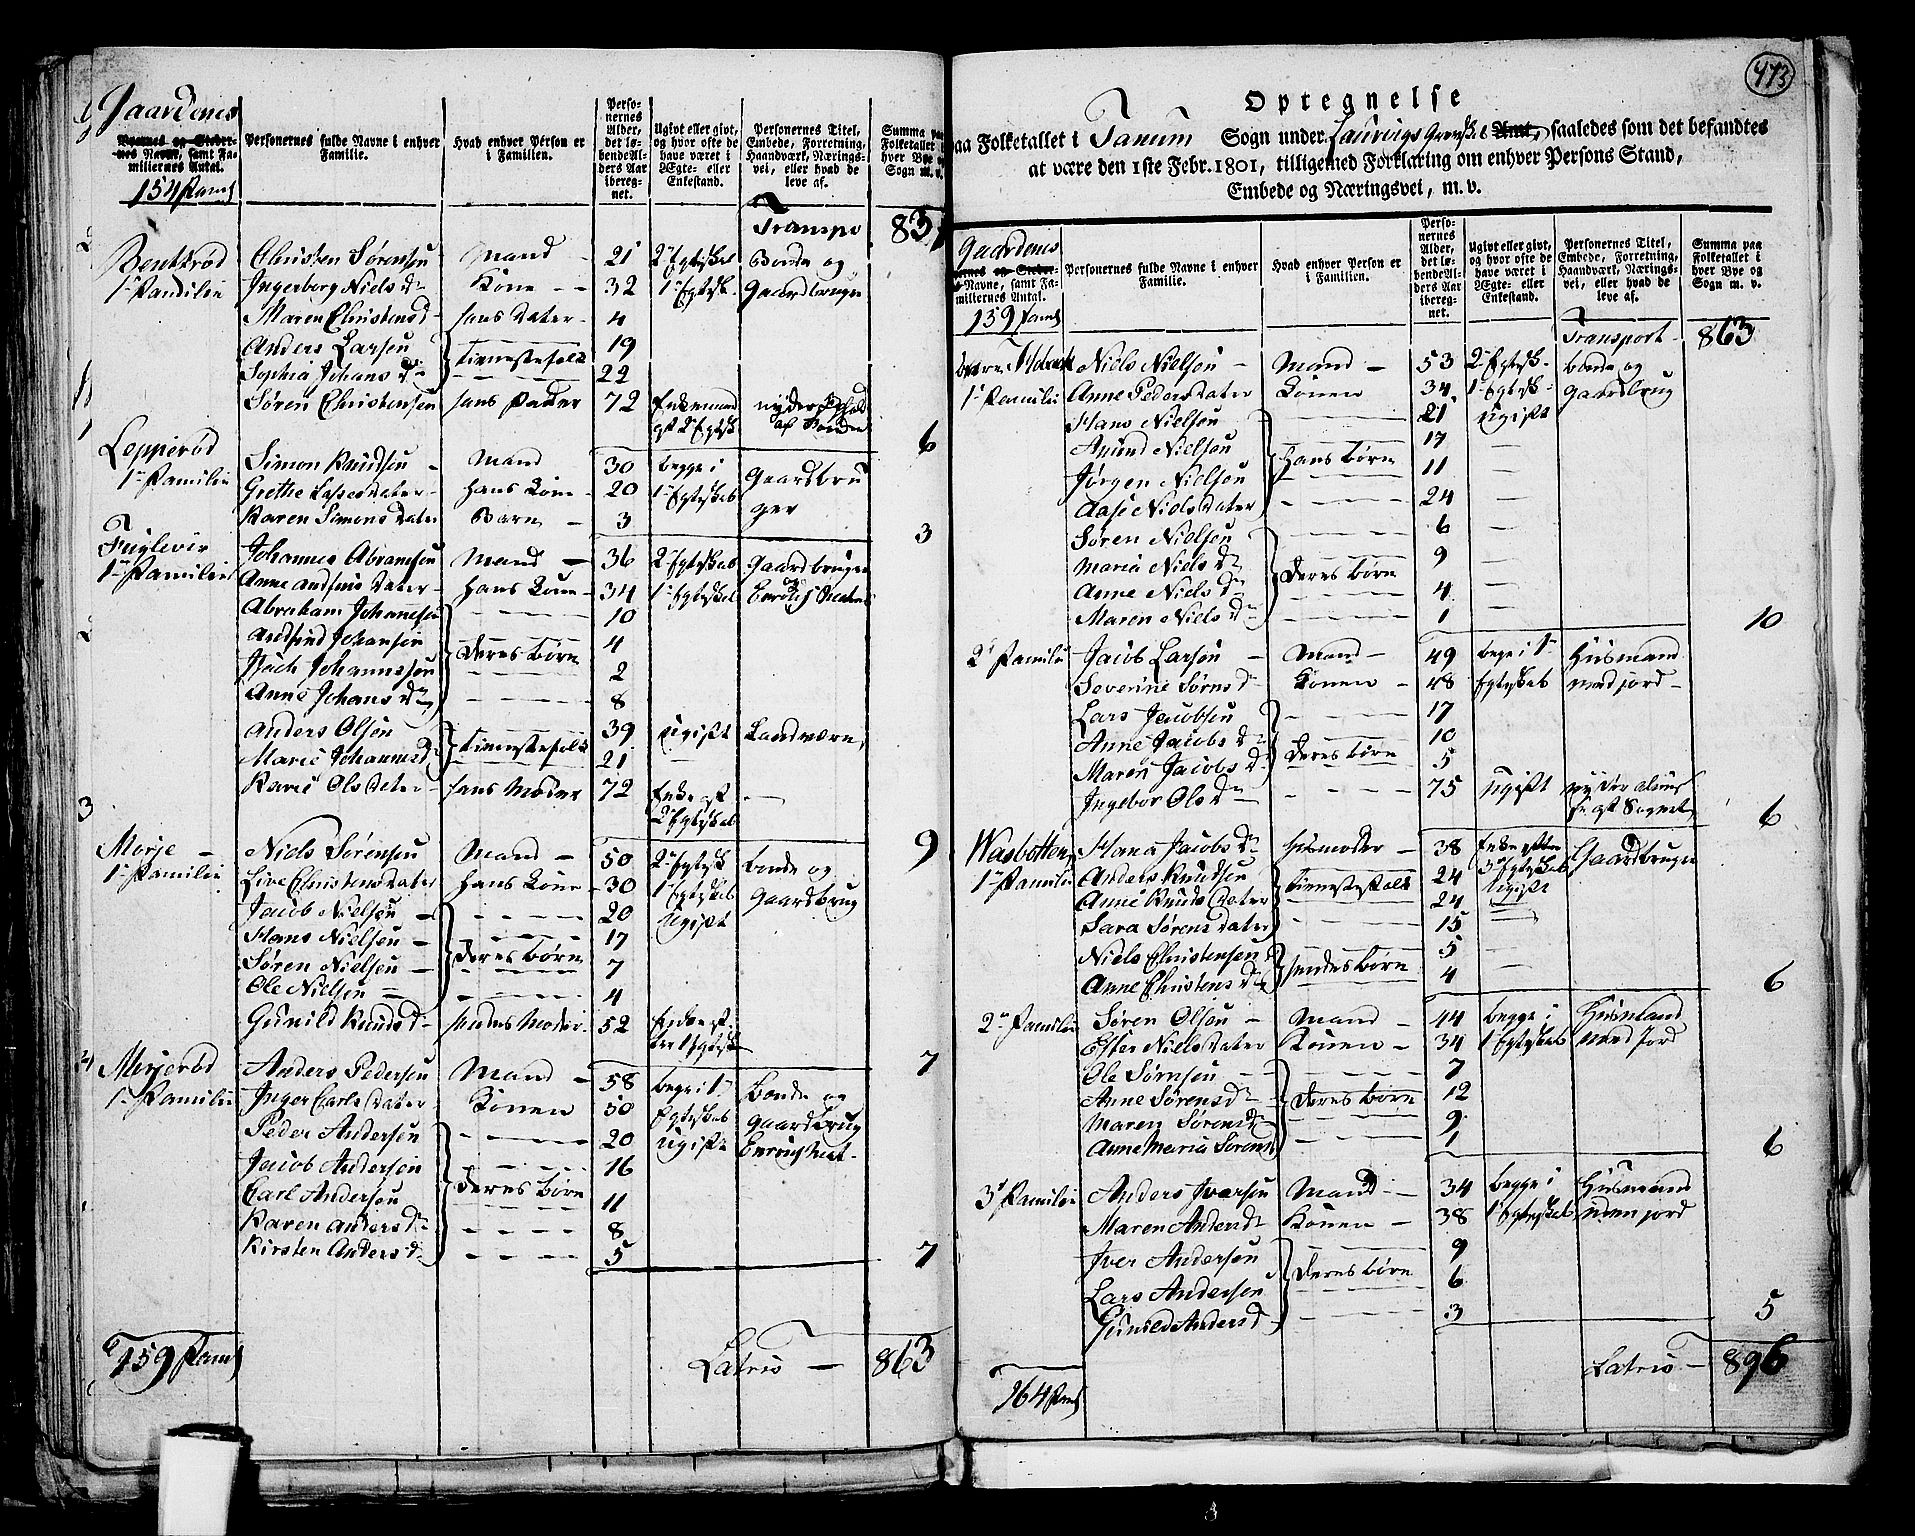 Gaardenes
Byernes og Stedernes Navne, samt Familiernes Antal.
Personernes fulde Navne i enhver Familie.
Hvad enhver Person er i Familien.
Personernes Alder, det løbende Alders Aar iberegnet.
Ugivt eller givt, og hvor ofte de have været i Ægte- eller Enkestand.
Personernes Titel, Embede, Forretning, Haandværk, Næringsvei, eller hvad de leve af.
Summa paa Folketallet i hver Bye og Sogn m. v.
154 Fam
Transpo 831
Bentsrød Christen Sørensen Mand 21 2 Egteskab Bonde og
1te Familie Ingerborg Niels dr Kone 32 1te Egtesk. Gaardbruger
Maren Christens d hans Dater 4
Anders Larsen Tienestefolk 19
Sophia Johans dr 22
Søren Christensen hans Fader 72 Enkemand nyder Ophold
eft 2 Egtesk af Bonden 6
Lepperød Simon Knudsen Mand 30 begge i Gaardbru
1te Familie Grethe Lassesdater hans Kone 20 1te Egteskab ger
Karen Simonsdater Barn 3 3
Fuglevig Johannes Abramsen Mand 36 2 Egteskab Gaardbruger
1te Familie Anne Andfinsdater hans Kone 34 1te Egteskab og
Abraham Johansen 10
Andfind Johansen Deres børn 4
Isach Johannessen 2
Anne Johans dr 8
Anders Olsen Tienestefolk 39 ugift Landværn
Marie Johannes d 21
Karie Olsdater hans Moder 72 Enke eft
2 Egteskab 9
Morje Niels Sørensen Mand 50 2 Egtesk bonde og
1te Familie Live Christensdater hans Kone 30 1te Egteskab gaardbrug
Jacob Nielsen 20 Ugift
Hans Nielsen Deres børn 17
Søren Nielsen 7
Ole Nielsen 4
Gunild Knuds d hendes Moder 52
7
Morjerød Anders Pedersen Mand 58 begge i 1te bonde og
1te Familie Inger Carlsdater Konen 50 Egteskab gaardbrug
Peder Andersen 20 Ugift
Jacob Andersen Deres børn 16
Carl Andersen 11
Karen Anders dr 8
Kirsten Anders d 5 7
159 Fam Latris 863
473
Optegnelse
paa Folketallet i Tanum Sogn under Laurvigs Grevsk. Amt, saaledes som det befandtes
at være den 1ste Febr. 1801, tilligemed Forklaring om enhver Persons Stand,
Embede og Næringsvei, m. v.
Gaardenes
Navne, samt Familiernes Antal.
Personernes fulde Navne i enhver Familie.
Hvad enhver Person er i Familien.
Personernes Alder, det løbende Alders Aar iberegnet.
Ugivt eller givt, og hvor ofte de have været i Ægte- eller Enkestand.
Personernes Titel, Embede, Forretning, Haandværk, Næringsvei, eller hvad de leve af.
Summa paa Folketallet i hver Bye og Sogn m. v.
159 Fam
Transport 863
Niels Nielsen Mand 53 2 Egtesk. bonde og
1te Familie Anne Pedersdater Konen 34 1te Egtesk gaardbrug
Hans Nielsen 21 ugift
Amund Nielsen Hans børn 17
Jørgen Nielsen 11
Aase Nielsdater 24
Søren Nielsen 6
Maria Niels dr Deres børn 9
Anne Niels dr 4
Maren Niels dr 1 10
2 Familie Jacob Larsen Mand 49 begge i 1te Husmand
Severine Sørens d Konen 48 Egteskab med jord
Lars Jacobsen 17
Anne Jacobs dr Deres børn 10
Maren Jacobs dr 5
Ingebor Ols dr 75 ugift nyder almis
se af Sognet 6
Wasbotten Hana Jacobs dr husmoder 38 Enke efter Gaardbruger
1te Familie Anders Knudsen Tienestefolk 24 3 Egteskab
Anne Knudsdater 24 Ugift
Sara Sørensdater 15
Niels Christensen hendes børn 5
Anne Christens dr 4 6
2 Familie Søren Olsen Mand 44 begge i Husmand
Ester Nielsdater Konen 34 1 Egteskab med Jord
Ole Sørnsen 7
Anne Sørens dr Deres børn 12
Maren Sørens dr 9
Anne Maria Sørens d 1 6
3 Familie Anders Iversen Mand 34 begge i Husmand
Maren Anders dr Konen 38 1 Egteskab uden jord
Iver Andersen 9
Lars Andersen Deres børn 6
Gunild Anders d 3 5
164 Fam Latris 896